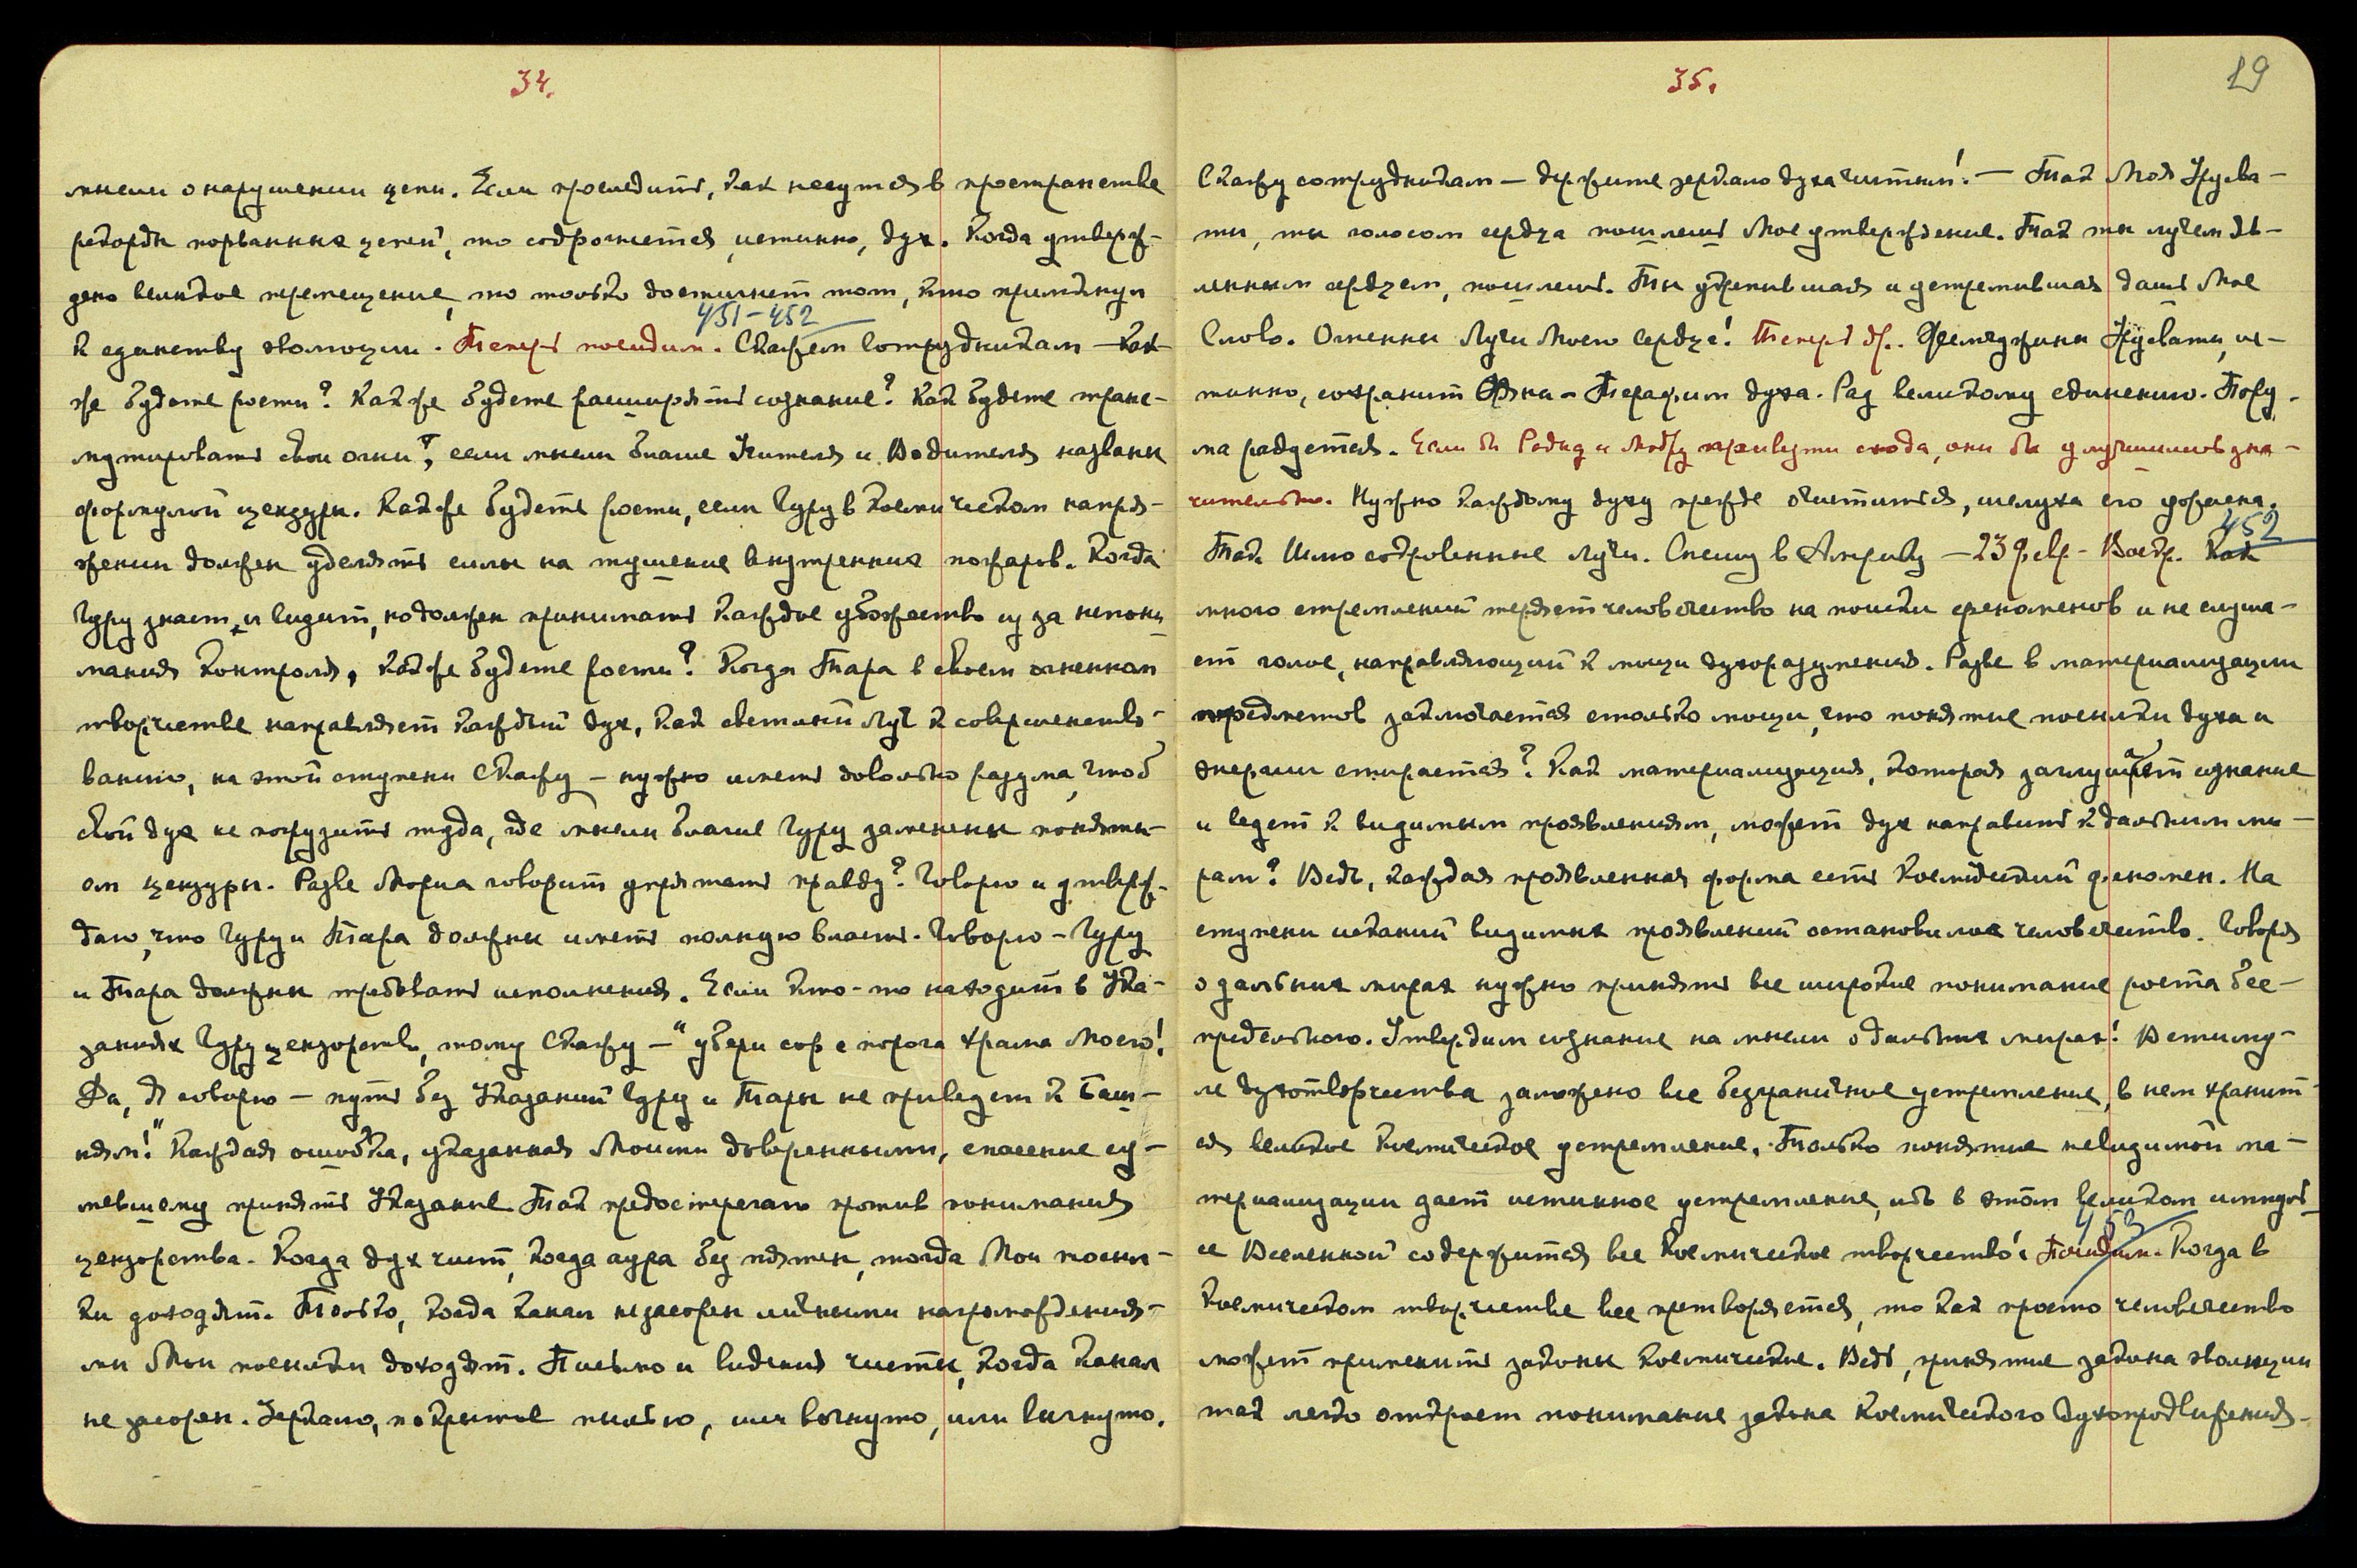 34.
мысли о нарушении цепи. Если проследить, как несутся в пространстве
рекорды порванных цепей, то содрогнется, истинно, дух. Когда утверж-
дено великое перемещение, то только достигнет тот, кто примкнул
451-452
к единству эволюции. Теперь посидим. Скажем сотрудникам — как
же будете расти? Как же будете расширять сознание? Как будете транс-
мутировать свои огни?, если мысли благие Учителя и Водителя названы
формулой цензуры. Как же будете расти, если Гуру в космическом напря-
жении должен уделять силы на тушение внутренних пожаров. Когда
Гуру знает и видит, но должен принимать каждое убожество из за непони-
мания контроля, как же будете расти? Когда Тара в своем огненном
творчестве направляет каждый дух, как светлый луч к совершенство-
ванию, на этой ступени скажу — нужно иметь довольно разума, чтоб
свой дух не погрузить туда, где мысли благие Гуру заменены поняти-
ем цензуры. Разве Мориа говорит упрятать правду? Говорю и утверж-
даю, что Гуру и Тара должны иметь полную власть. Говорю — Гуру
и Тара должны требовать исполнения. Если кто-то находит в Ука-
заниях Гуру цензорство, тому скажу — "убери сор с порога храма Моего!
Да, Я говорю — путь без Указаний Гуру и Тары не приведет к Баш-
ням!" Каждая ошибка, указанная Моими доверенными, спасение су-
мевшему принять Указание. Так предостерегаю против понимания
цензорства. Когда дух чист, когда аура без пятен, тогда Мои посыл-
ки доходят. Только, когда канал не засорен личными нагромождения-
ми Мои посылки доходят. Письмо и видения чисты, когда канал
не засорен. Зеркало, покрытое пылью, или вогнуто, или выгнуто.
35.
19
Скажу сотрудникам — держите зеркало духа чистым! — Так Моя Урусва-
ти, ты голосом сердца пошлешь Мое утверждение. Так ты лучем яв-
ленным сердцем, пошлешь. Ты укрепившая и устремившая дашь Мое
Слово. Огненны Лучи Моего Сердца! Теперь др. Жемчужины Урусвати, ис-
тинно, сохранит Терафим духа. Рад великому единению. Пору-
ма радуется. Если бы Радну и Модру привезти сюда, они бы улучшились зна-
чительно. Нужно каждому духу прежде очиститься, шелуха его ужасна.
452
Так Шлю сокровенные лучи. Спешу в Америку — 23 фев - Воскр. Как
много стремлений теряет человечество на поиски феноменов и не слуша-
ет голос, направляющий к мощи духоразумения. Разве в материализации
предметов заключается столько мощи, что понятие посылки духа и
энергии стирается? Как материализация, которая заглушает сознание
и ведет к видимым проявлениям, может дух направить к дальним ми-
рам? Ведь, каждая проявленная форма есть космический феномен. На
ступени исканий видимых проявлений остановилось человечество. Говоря
о дальних мирах нужно принять все широкое понимание роста бес-
предельного. Утвердим сознание на мысли о дальних мирах! В стиму-
ле духотворчества заложено все безграничное устремление, в нем хранит-
ся великое космическое устремление. Только понятие невидимой ма-
териализации дает истинное устремление, ибо в этом великом импуль
453
се Вселенной содержится все космическое творчество! Посидим. Когда в
космическом творчестве все претворяется, то как просто человечество
может применить законы космические. Ведь, принятие закона эволюции
так легко откроет понимание закона космического духопродвижения.